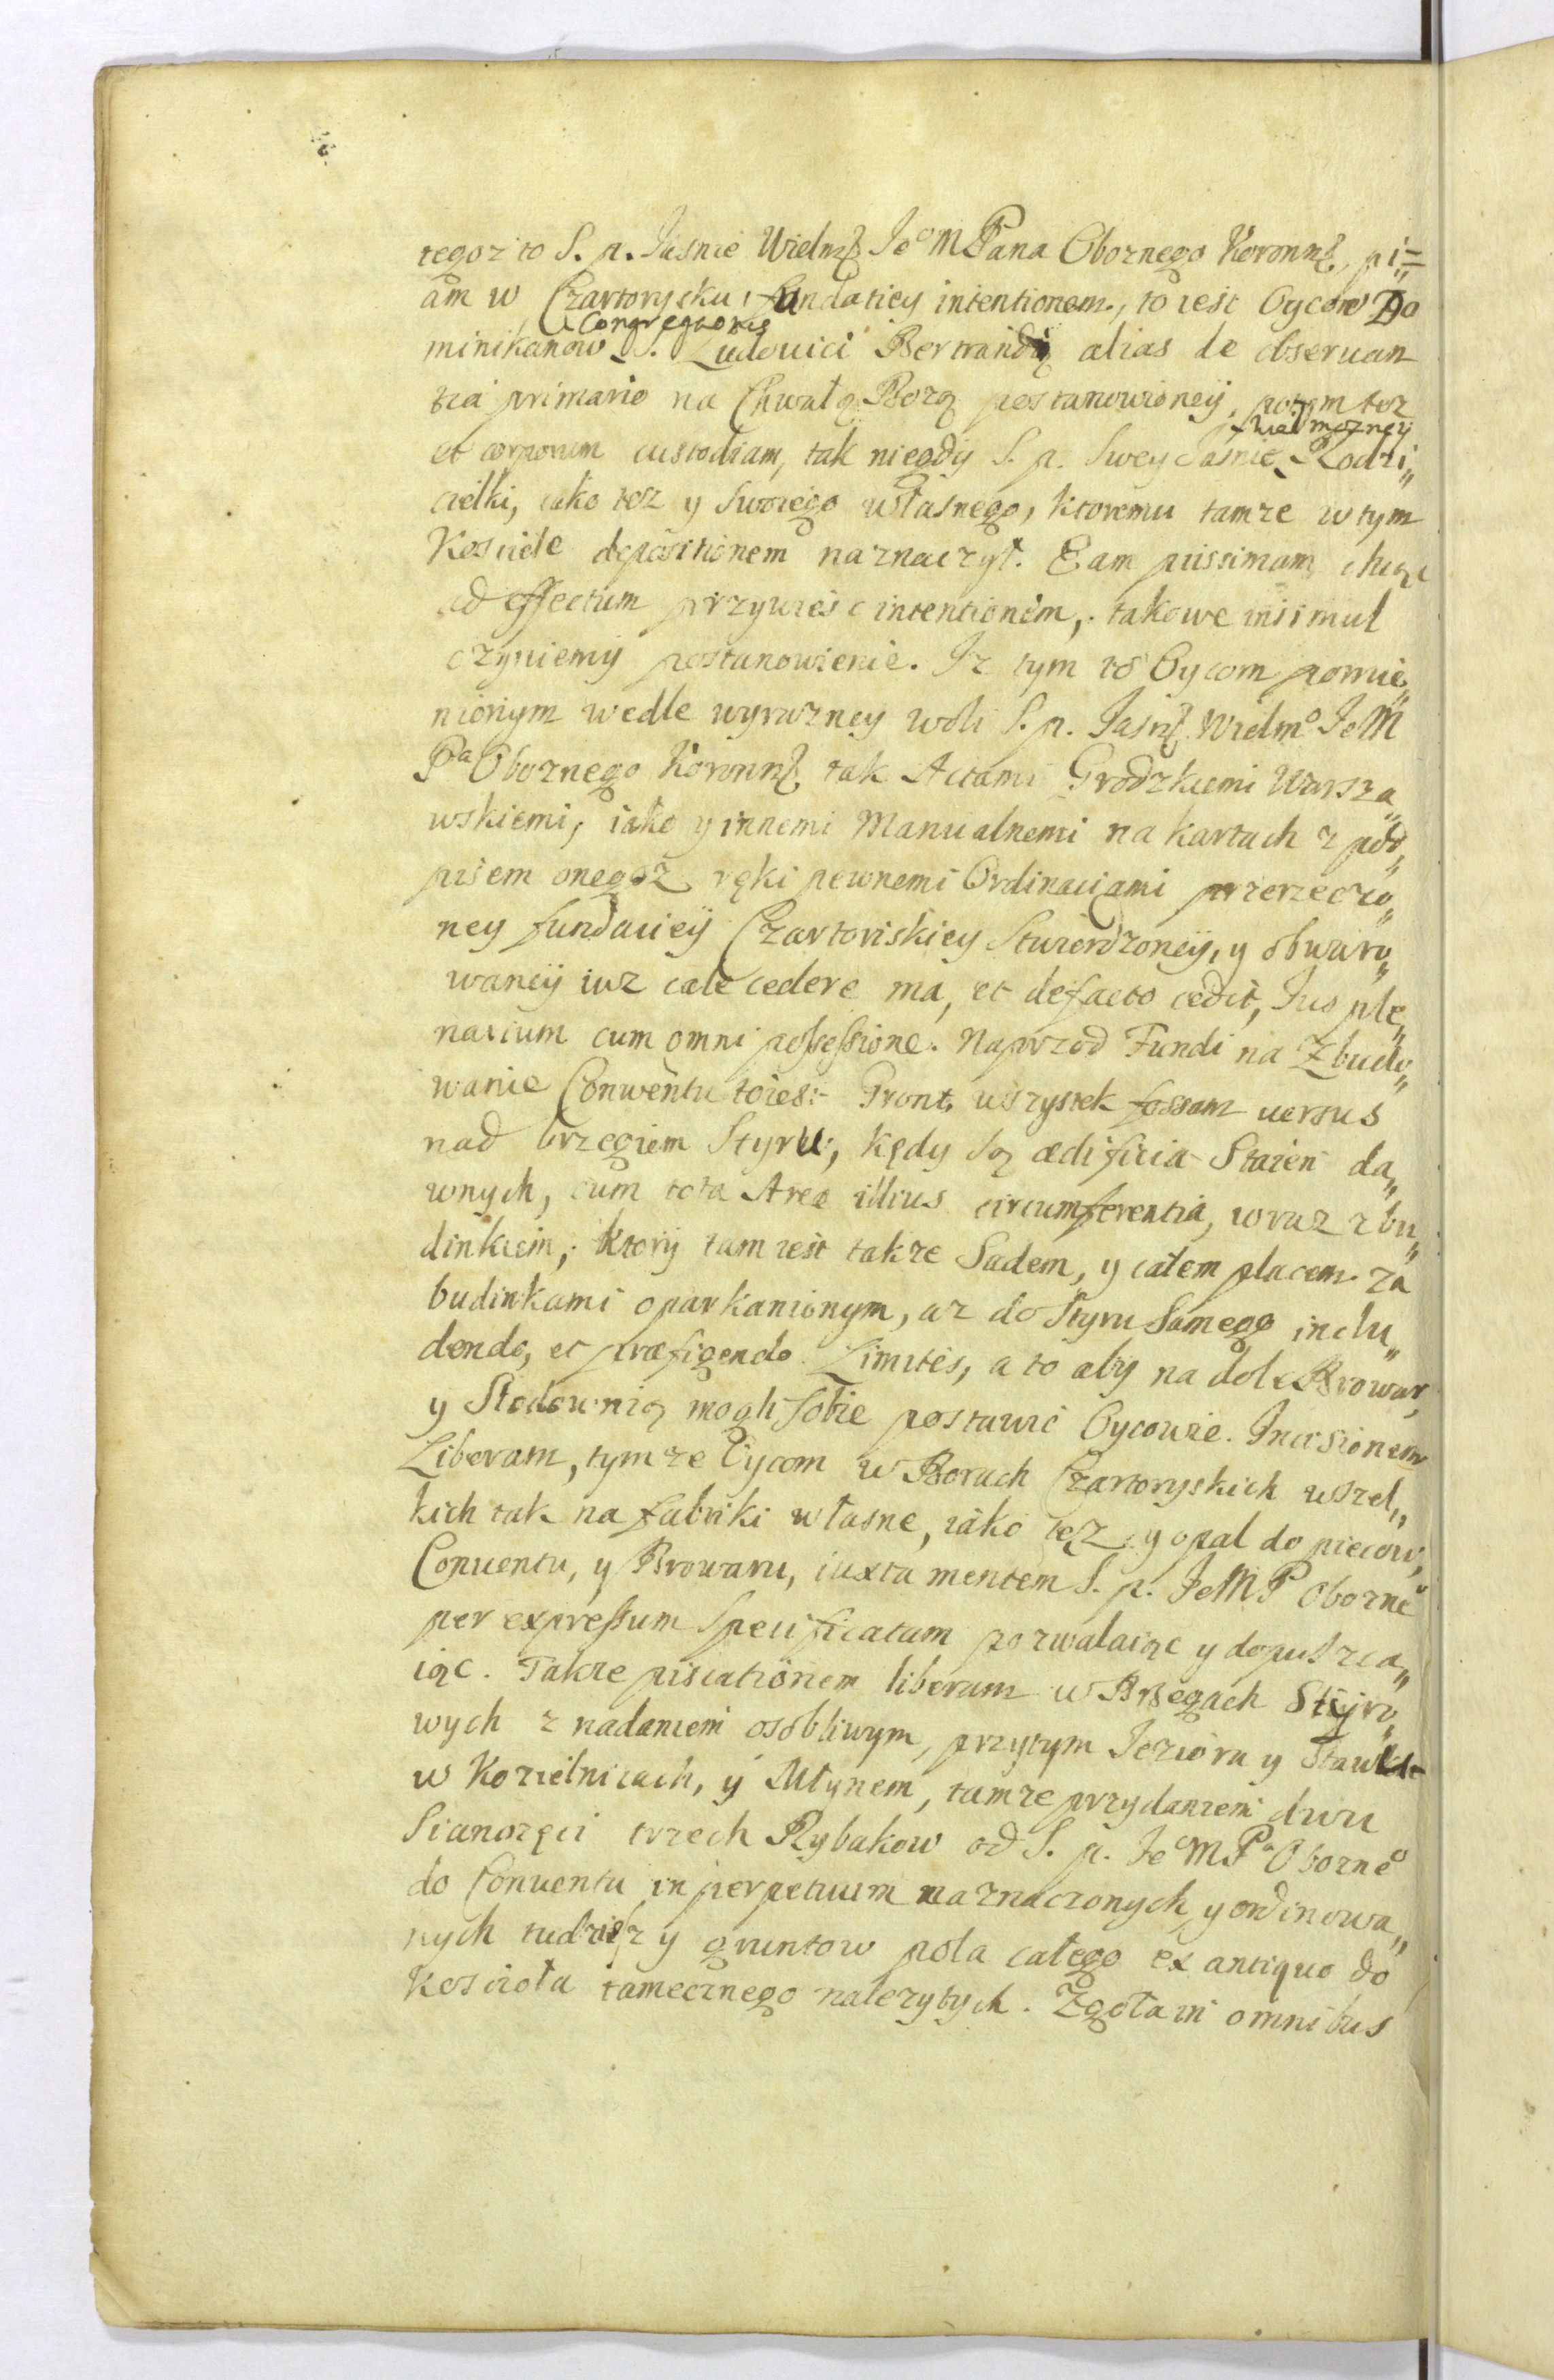 tegoz to S. p. Jasnie Wielmꝫ Jeº M Pana Oboznego Koronnꝫ, pi=
am w Czartorysku fundatiey intentionem, to iest Oycow Do
Congregationis
minikanow S. Ludouici Bertrandi alias de obseruan
tia primario na Chwałę Bozą postanowioney, potym tez
wielmozney
et corporum custodiam, tak niegdy S. p. Swey Jasnie Rodzi„
cielki, iako tez y swoiego własnego, ktoremu tamze w tym
Kosciele depositionem naznaczył. Eam piissimam chcąc
ad effectum przywiesc intentionem, takowe insimul
czyniemy postanowienie. Iz tym to Oycom pomie„
nionym wedle wyrazney woli S. p. Jasnꝫ Wielmº JeM
Pª Oboznego Koronnꝫ tak Actami Grodzkiemi Warsza„
wskiemi, iako y innemi Manualnemi na kartach z pod„
pisem onegoz ręki pewnemi Ordinaciami przerzeczo„
ney fundaciey Czartoriskiey Stwierdzoney, y obwaro„
waney iuz cale cedere ma, et defacto cedit, Jus ple„
narium cum omni possessione. Naprzod Fundi na Zbudo„
wanie Conwentu toiest Gront wszystek fossam uersus
nad brzegiem Styru, kędy są ædificia Staien da„
wnych, cum tota Areæ illius circumferentia, wraz z bu„
dinkiem, ktory tam iest takze Sadem, y całem placem za
budinkami oparkanionym, az do Styru Samego inclu„
dendo, et præfigendo Limites, a to aby na dole Browar,
y Słodownią mogli sobie postawic Oycowie. Incisionem
Liberam, tymze Oycom w Borach Czartoryskich wszel„
kich tak na fabriki własne, iako tez y opal do piecow,
Conuentu, y Browaru, iuxta mentem S. p. JeMP Oboznº
per expressum Specificatam pozwalaiąc y dopuszcza„
iąc. Takze piscationem liberam w Brzegach Styro„
wych z nadaniem osobliwym, przytym Jeziora y Stawku
w Kozielnicach, y Młynem, tamze przydaniem dwu
Sianozęci trzech Rybakow od S. p. Jeº M Pª Oboznº
do Conuentu in perpetuum naznaczonych y ordinowa„
nych tudziesz y gruntow pola całego ex antiquo do
Kosciola tamecznego nalezytych. Zgoła in omnibus